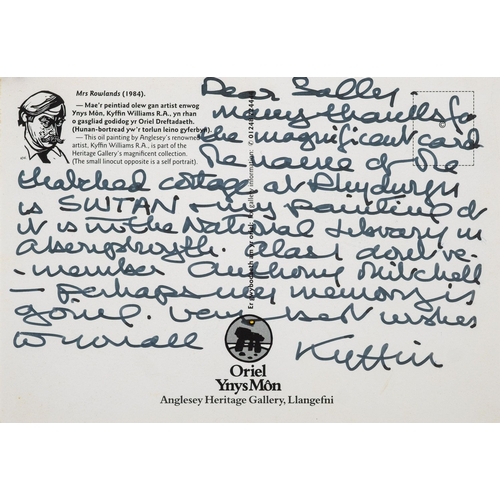 Mrs Rowlands (1984).
— Mae'r peintiad olew gan artist enwog
Ynys Môn, Kyffin Williams R.A., yn rhan
o gasgliad godidog yr Oriel Dreftadaeth.
(Hunan-bortread yw'r torlun leino gyferbyn)
— This oil painting by Anglesey's renowned
artist, Kyffin Williams R.A., is part of the
Heritage Gallery's magnificent collection.
(The small linocut opposite is a self portrait).
Dear Salley —
many thanks for
the magnificent card
The name of the
thatched cottage at Rhydwyn
is SWTAN — my painting of
it is in the National Library in
Aberystwyth. Alas I don't re-
-member Anthony Mitchell
— perhaps my memory is
going. Very best wishes
to you all
Kyffin
Oriel
Ynys Môn
Anglesey Heritage Gallery, Llangefni